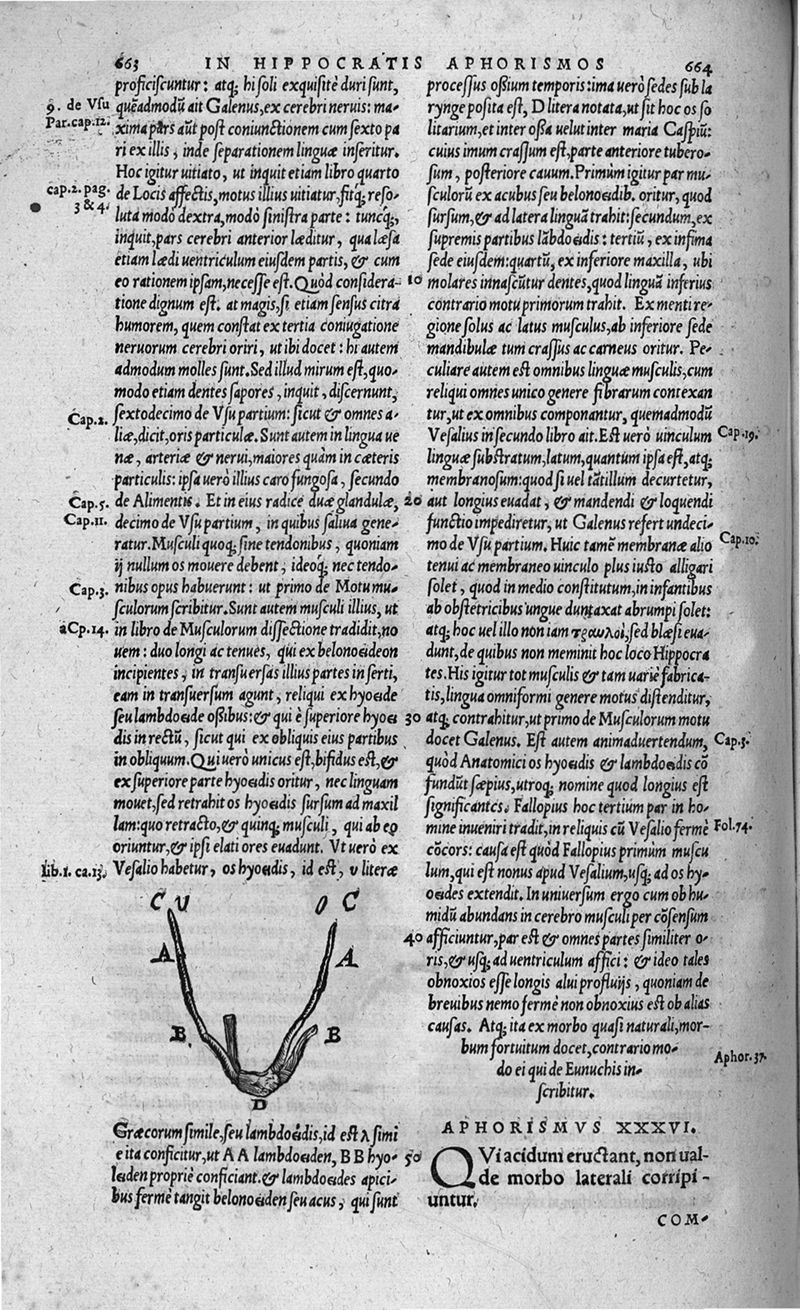 663 IN HIPPOCRATIS APHORISMOS 664
proficiscuntur: atq; hi soli exquisitè duri sunt,
9. de Vsu
quēadmodū ait Galenus, ex cerebri neruis: ma-
Par. cap. 12.
xima pars aūt post coniunctionem cum sexto pa
ri ex illis, inde separationem linguæ inseritur.
Hoc igitur uitiato, ut inquit etiam libro quarto
cap. 2. pag.
de Locis affectis, motus illius uitiatur, fitq; reso-
3 & 4.
luta modò dextra, modò sinistra parte: tuncq;,
inquit, pars cerebri anterior læditur, qua læsa
etiam lædi uentriculum eiusdem partis, & cum
eo rationem ipsam, necesse est. Quòd considera-
10
tione dignum est. at magis, si etiam sensus citra
humorem, quem constat ex tertia coniugatione
neruorum cerebri oriri, ut ibi docet: hi autem
admodum molles sunt. Sed illud mirum est, quo-
modo etiam dentes sapores, inquit, discernunt,
Cap. 2.
sextodecimo de Vsu partium: sicut & omnes a-
liæ, dicit, oris particulæ. Sunt autem in lingua ue
næ, arteriæ & nerui, maiores quàm in cæteris
particulis: ipsa uerò illius caro fungosa, secundo
Cap. 5.
de Alimentis. Et in eius radice duæ glandulæ,
20
Cap. 11.
decimo de Vsu partium, in quibus saliua gene-
ratur. Musculi quoq; sine tendonibus, quoniam
ij nullum os mouere debent, ideoq; nec tendo-
Cap. 3.
nibus opus habuerunt: ut primo de Motu mu-
sculorum scribitur. Sunt autem musculi illius, ut
à Cp. 14.
in libro de Musculorum dissectione tradidit, no
uem: duo longi ac tenues, qui ex belonoëideon
incipientes, in transuersas illius partes inserti,
eam in transuersum agunt, reliqui ex hyoëide
seu lambdoëide ossibus: & qui è superiore hyoëi
30
dis in rectū, sicut qui ex obliquis eius partibus
in obliquum. Qui uerò unicus est, bifidus est, &
ex superiore parte hyoëidis oritur, nec linguam
mouet, sed retrahit os hyoëidis sursum ad maxil
lam: quo retracto, & quinq; musculi, qui ab eo
oriuntur, & ipsi elati ores euadunt. Vt uerò ex
lib. 1. ca. 13.
Vesalio habetur, os hyoëidis, id est, υ literæ
C υ O C
A A
B B
D
Græcorum simile, seu lambdoëidis, id est λ simi
e ita conficitur, ut A A lambdoëiden, B B hyo-
50
ëiden propriè conficiant. & lambdoëides apici-
bus fermè tangit belonoëiden seu acus, qui sunt
processus ossium temporis: ima uerò sedes sub la
rynge posita est, D litera notata, ut sit hoc os so
litarium, et inter ossa uelut inter maria Caspiū:
cuius imum crassum est, parte anteriore tubero-
sum, posteriore cauum. Primùm igitur par mu-
sculorū ex acubus seu belonoëdib. oritur, quod
sursum, & ad latera linguā trahit: secundum, ex
supremis partibus lābdoëdis: tertiū, ex infima
sede eiusdem: quartū, ex inferiore maxilla, ubi
molares innascūtur dentes, quod linguā inferius
contrario motu primorum trahit. Ex menti re-
gione solus ac latus musculus, ab inferiore sede
mandibulæ tum crassus ac carneus oritur. Pe-
culiare autem est omnibus linguæ musculis, cum
reliqui omnes unico genere fibrarum contexan
tur, ut ex omnibus componantur, quemadmodū
Vesalius in secundo libro ait. Est uerò uinculum
Cap. 19.
linguæ substratum, latum, quantùm ipsa est, atq;
membranosum: quod si uel tātillum decurtetur,
aut longius euadat, & mandendi & loquendi
functio impediretur, ut Galenus refert undeci-
mo de Vsu partium. Huic tamē membranæ alio
Cap. 10.
tenui ac membraneo uinculo plus iusto alligari
solet, quod in medio constitutum, in infantibus
ab obstetricibus ungue duntaxat abrumpi solet:
atq; hoc uel illo non iam τραυλοὶ, sed blæsi eua-
dunt, de quibus non meminit hoc loco Hippocra
tes. His igitur tot musculis & tam uariè fabrica-
tis, lingua omniformi genere motus distenditur,
atq; contrahitur, ut primo de Musculorum motu
docet Galenus. Est autem animaduertendum,
Cap. 3.
quòd Anatomici os hyoëidis & lambdoëidis cō
fundūt sæpius, utroq; nomine quod longius est
significantes. Fallopius hoc tertium par in ho-
mine inueniri tradit, in reliquis cū Vesalio fermè
Fol. 74.
cōcors: causa est quòd Fallopius primùm muscu
lum, qui est nonus apud Vesalium, usq; ad os hy-
oëides extendit. In uniuersum ergo cum ob hu-
midū abundans in cerebro musculi per cōsensum
40
afficiuntur, par est & omnes partes similiter o-
ris, & usq; ad uentriculum affici: & ideo tales
obnoxios esse longis alui profluuijs, quoniam de
breuibus nemo fermè non obnoxius est ob alias
causas. Atq; ita ex morbo quasi naturali, mor-
bum fortuitum docet, contrario mo-
Aphor. 37.
do ei qui de Eunuchis in-
scribitur.
APHORISMVS XXXVI.
QVi acidum eructant, non ual-
de morbo laterali corripi-
untur.
COM-